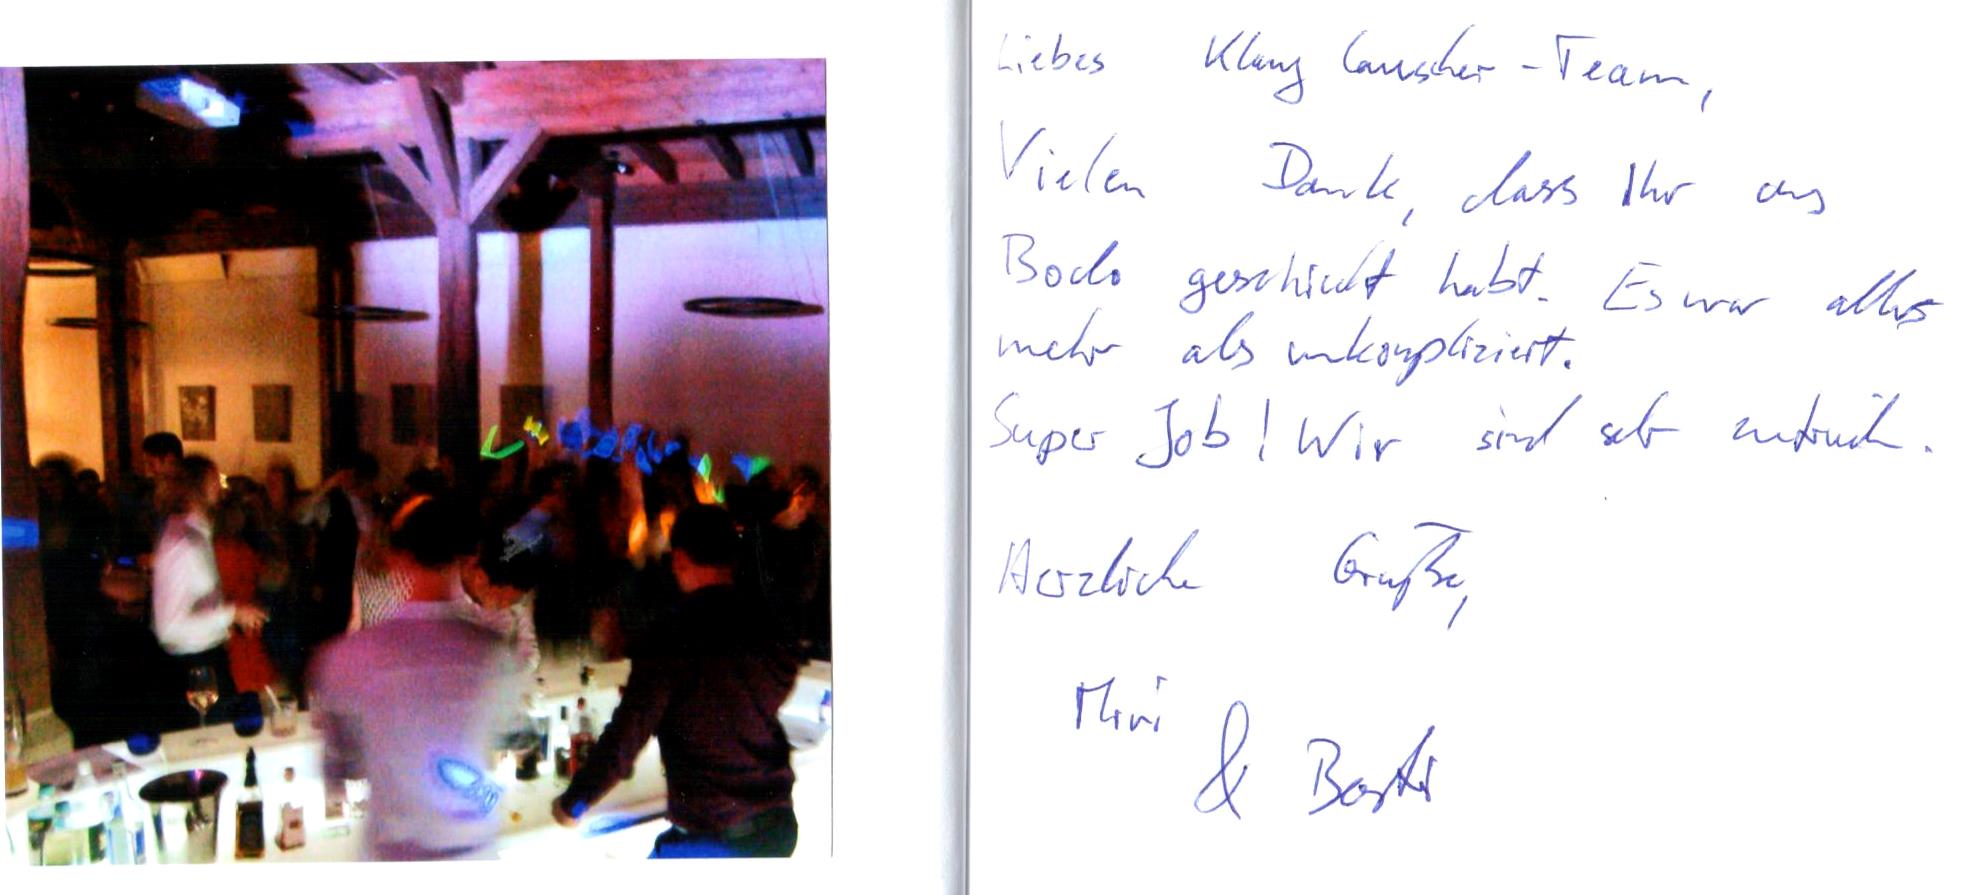 Liebes Klanglauscher-Team,
Vielen Dank, dass Ihr uns
Bodo geschickt habt. Es war alles
mehr als unkompliziert.
Super Job! Wir sind sehr zufrieden.
Herzliche Grüße,
Miri
& Basti